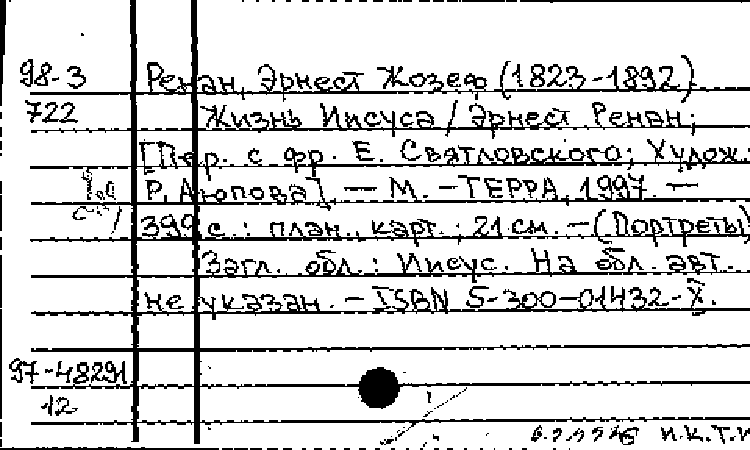 98-3 Ренан, Эрнест Жозеф (1823-1892)
722 Жизнь Иисуса / Эрнест Ренан;
[Пер. с фр. Е. Святловского; Худож.
Р. Аюпова]. — М. — ТЕРРА, 1997. —
399 с.: план., карт.; 21 см. — (Портреты)
Загл. обл.: Иисус. На обл. авт.
не указан. — ISBN 5-300-01432-X.
97-48291
12
Н.К.Т.И